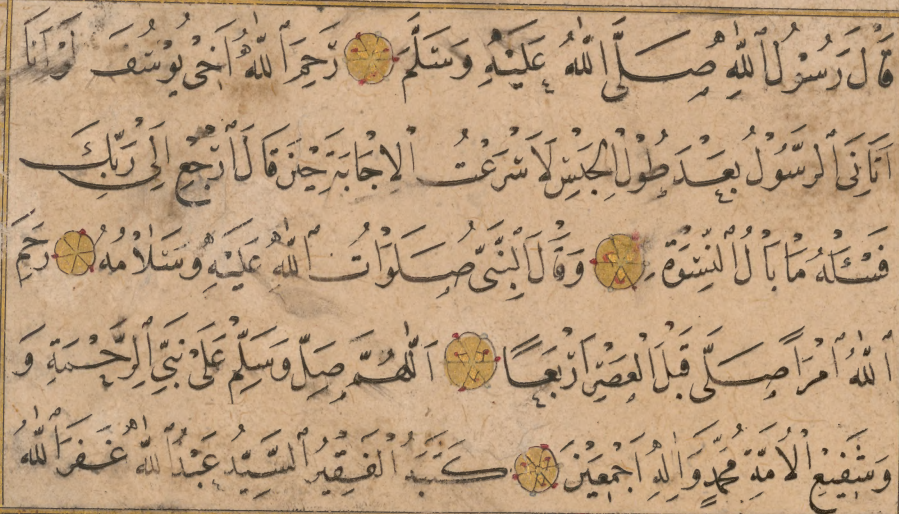 قَالَ رَسُوْلُ ٱللّٰهِ صَلَّى ٱللّٰهُ عَلَيْهِ وَسَلَّمَ رَحِمَ ٱللّٰهُ اَخِى يُوْسُفَ لَوْ اَنَا
اَتَانِىَ ٱلرَّسُوْلُ بَعْدَ طُوْلِ الْحَبْسِ لَاَسْرَعْتُ الْاِجَابَةَ حِيْنَ قَالَ ٱرْجِعْ اِلٰى رَبِّكَ
فَسْـَٔلْهُ مَا بَالُ النِّسْوَةِ وَقَالَ النَّبِىُّ صَلَوَاتُ ٱللّٰهِ عَلَيْهِ وَسَلَامُهُ رَحِمَ
ٱللّٰهُ ٱمْرَاً صَلَّى قَبْلَ الْعَصْرِ اَرْبَعًا اَللّٰهُمَّ صَلِّ وَسَلِّمْ عَلٰى نَبِىِّ الرَّحْمَةِ وَ
وَشَفِيْعِ الْاُمَّةِ مُحَمَّدٍ وَاٰلِهِ اَجْمَعِيْنَ كَتَبَهُ الْفَقِيْرُ السَّيِّدُ عَبْدُ ٱللّٰهِ غَفَرَ ٱللّٰهُ